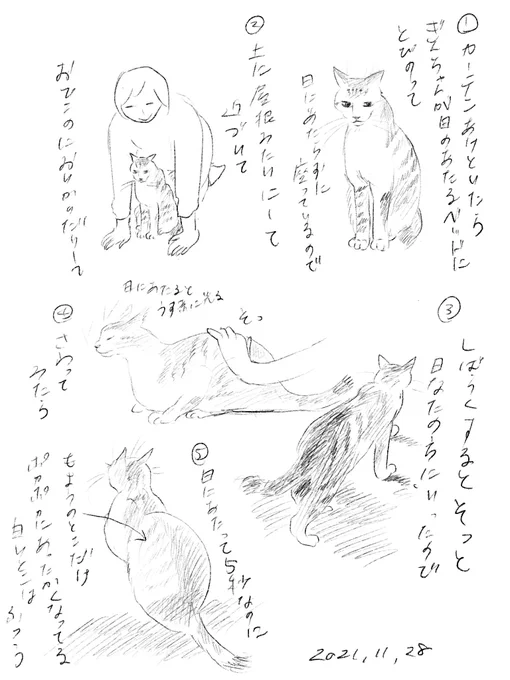 ① カーテンあけといたら
ぎんちゃんが日のあたるベッドに
とびのって
日にあたらずに
座っているので
② 上に屋根みたいにして
近づいて
おでこのにおいかいだりして
③ しばらくするとそっと
日なたのちにいったので
日にあたると
うす茶に光る
そっ
④ さわって
みたら
⑤ 日にあたって5秒なのに
もようのとこだけ
ポカポカにあったかくなってる
白いとこはふつう
2021,11,28